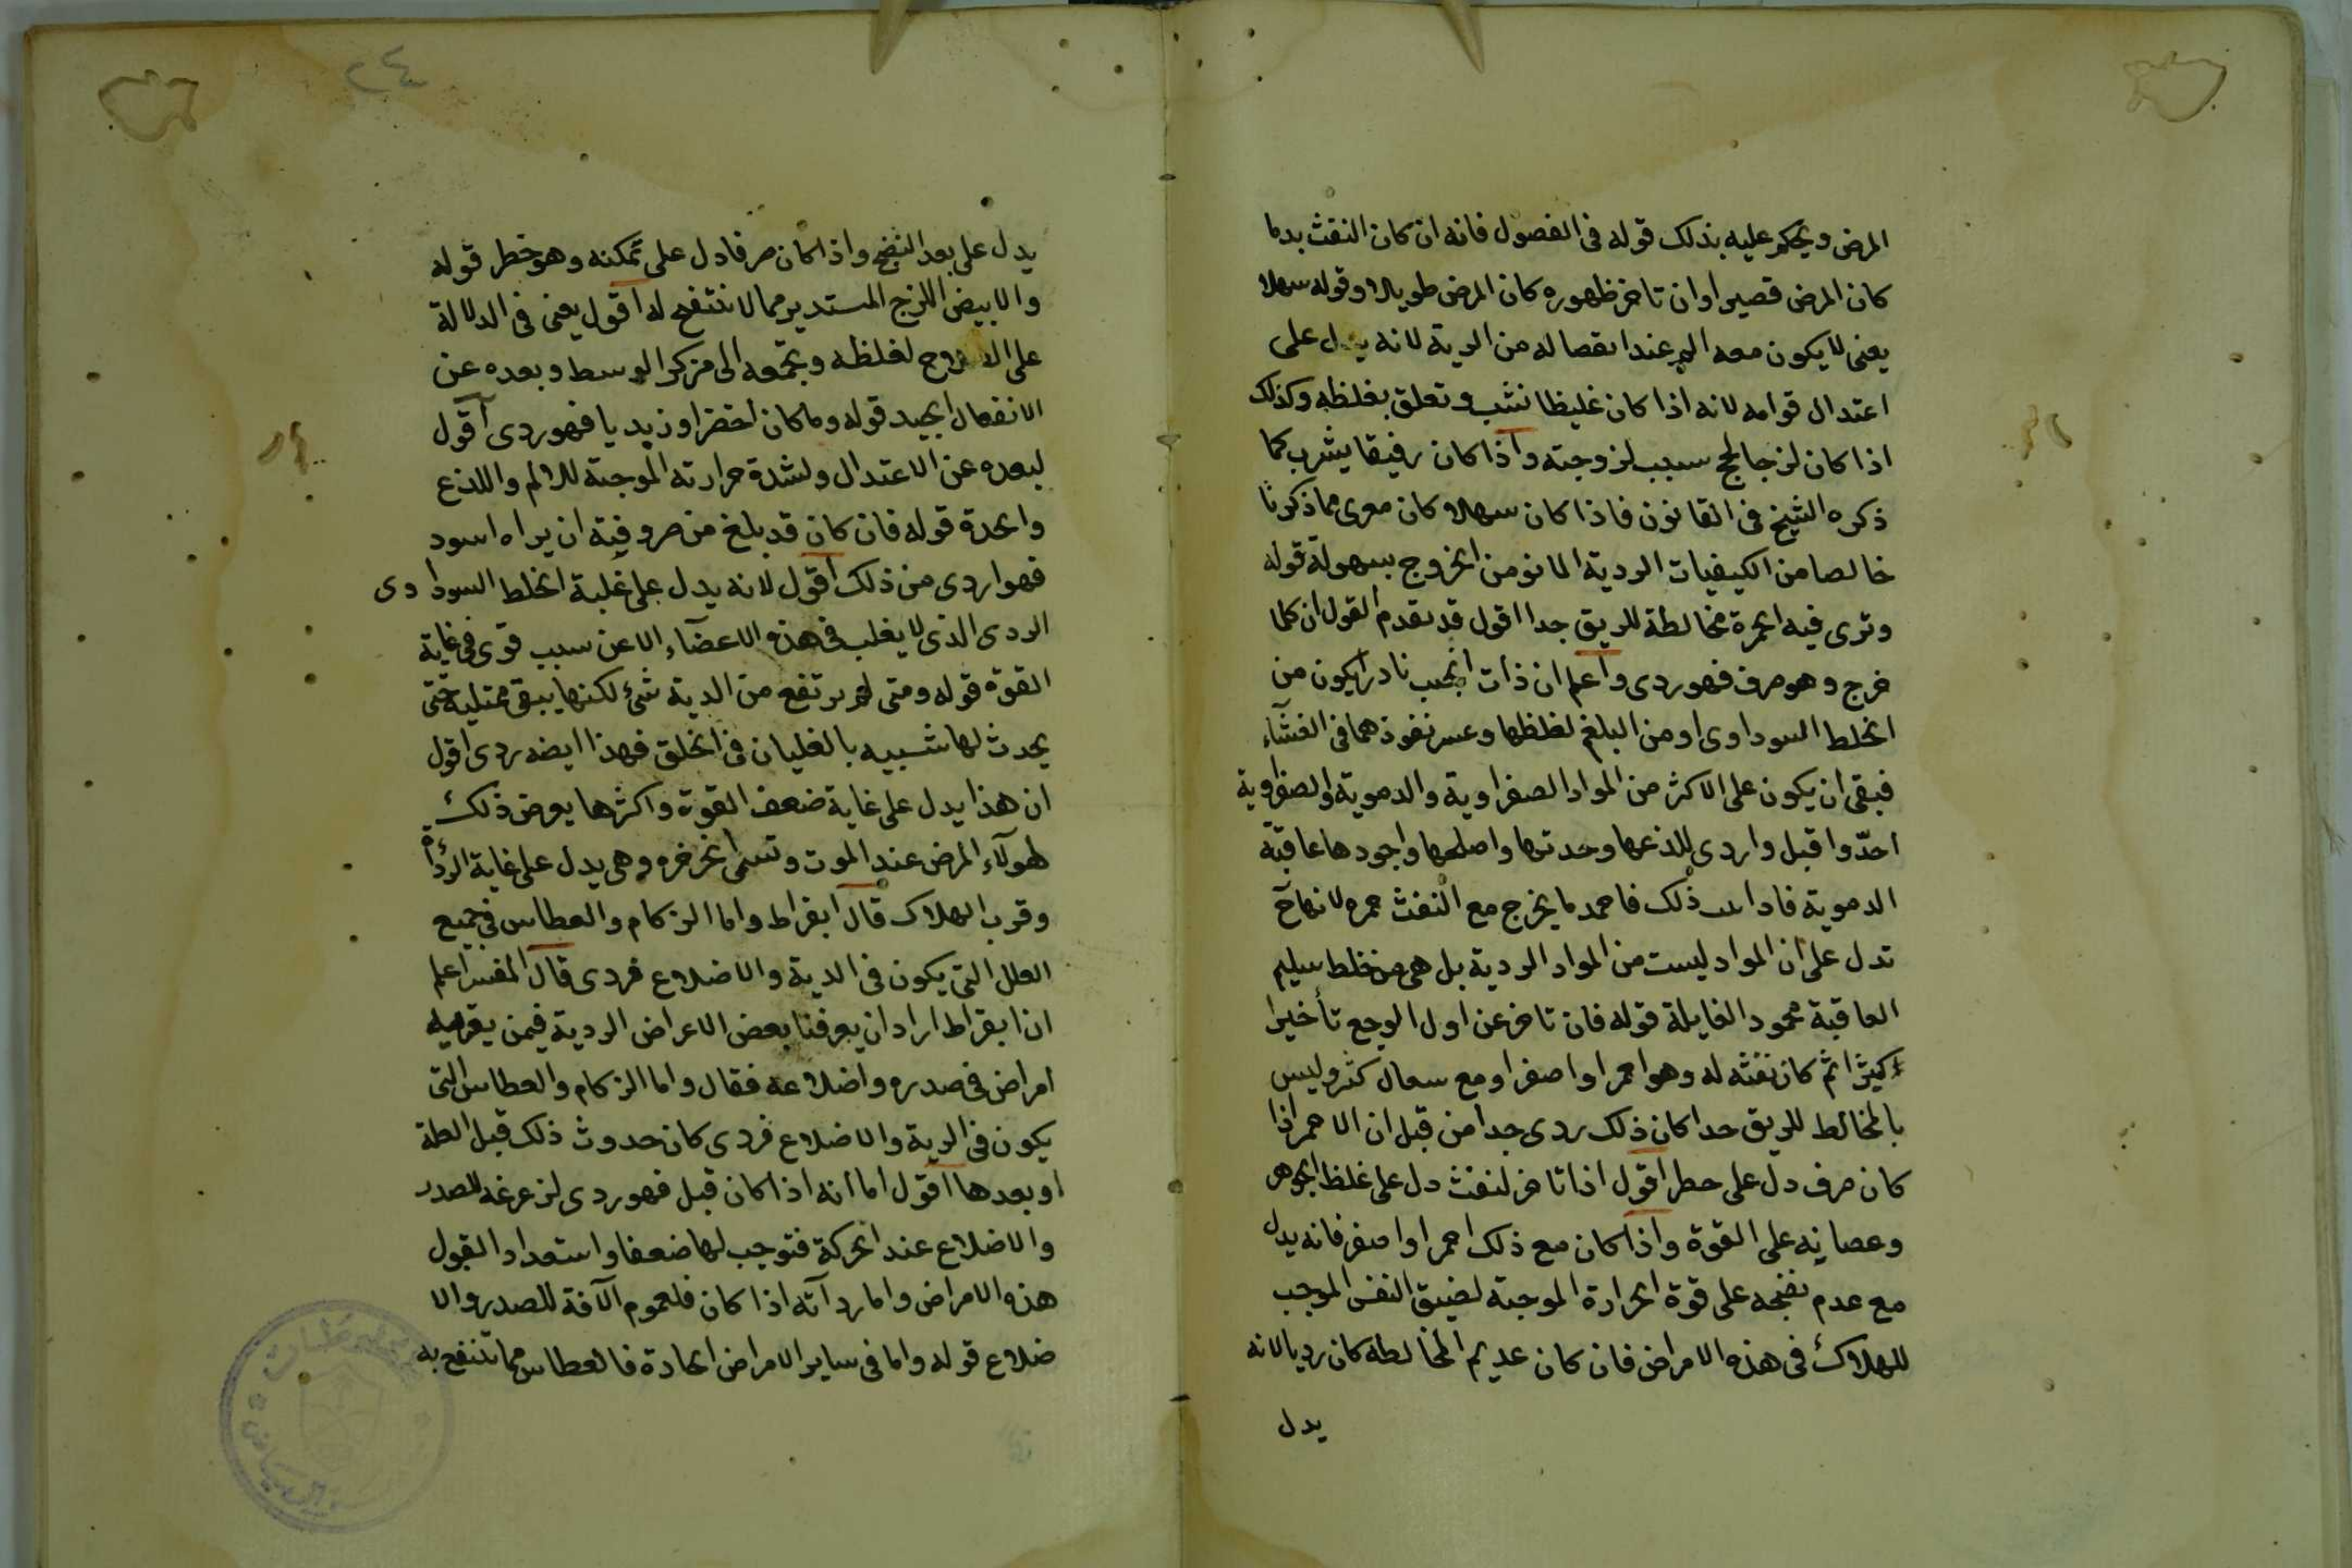 المرض ويحكم عليه بذلك قوله فى الفصول فانه ان كان النفث بدا
كان المرض قصيرا وان تاخر ظهوره كان المرض طويلا وقوله سهلا
يعنى لا يكون معه الم عند انفصاله من الرية لانه يدل على
اعتدال قوامه لانه اذا كان غليظا نشب وتعلق بغلظه وكذلك
اذا كان لزجا لحج بسبب لزوجته واذا كان رقيقا يشرب كما
ذكره الشيخ فى القانون فاذا كان سهلا كان معرى مما ذكرنا
خالصا من الكيفيات الردية المانو من الخروج بسهولة قوله
وترى فيه الحمرة مخالطة للريق جدا اقول قد تقدم القول ان كلما
خرج وهو صرف فهو ردى واعلم ان ذات الجنب نادرا يكون من
الخلط السوداوى او من البلغم لغلظها وعسر نفوذهما فى الغشاء
فبقى ان يكون على الاكثر من المواد الصفراوية والدموية والصفراوية
احدّ واقبل واردى للذعها وحدتها واصلحها واجودها عاقبة
الدموية فاذا ذلك فاحمد ما يخرج مع النفث حمره لانها ح
تدل على ان المواد ليست من المواد الردية بل هى من خلط سليم
العاقبة محمود الغايلة قوله فان تاخر عن اول الوجع تأخيرا
كثيرا ثم كان نفثه له وهو احمر او اصفر او مع سعال كثر وليس
بالمخالط للريق حدا كان ذلك ردى جدا من قبل ان الاحمر اذا
كان صرف دل على حطر اقول اذا تاخر لنفث دل على غلظ الجوهر
وعصانه على القوة واذا كان مع ذلك احمر او اصفر فانه يدل
مع عدم نضجه على قوة الحرارة الموجبة لضيق النفس الموجب
للهلاك فى هذه الامراض فان كان عديم المخالطة كان رديا لانه
يدل
٢٤
يدل على بعد النضج واذا كان صرفا دل على تمكنه وهو خطر قوله
والابيض اللزج المستدير مما لا ننتفع له اقول يعنى فى الدلالة
على الخروج لغلظه وتجمعه الى مركز الوسط وبعده عن
الانفعال الجيد قوله وما كان اخضر او زبديا فهو ردى اقول
لبعده عن الاعتدال ولشدة حرارته الموجبة للالم واللذع
والحدة قوله فان كان قد بلغ من صروفية ان يراه اسود
فهو اردى من ذلك اقول لانه يدل على غلبة الخلط السوداوى
الردى الذى لا يغلب فى هذه الاعضآء الا عن سبب قوى فى غاية
القوة قوله ومتى لم يرتفع من الرية شئ لكنها يبقى ممتلية حتى
يحدث لها شبيه بالغليان فى الحلق فهذا ايضه ردى اقول
ان هذا يدل على غاية ضعف القوة واكثرها يعرض ذلك
لهولآء المرض عند الموت وتسمى الخرخره وهى يدل على غاية الردأة
وقرب الهلاك قال ابقراط واما الزكام والعطاس فى جميع
العلل التى يكون فى الرية والاضلاع فردى قال المفسر اعلم
ان ابقراط اراد ان يعرفنا بعض الاعراض الردية فيمن يعتريه
امراض فى صدره واضلاعه فقال واما الزكام والعطاس التى
يكون فى الرية والاضلاع فردى كان حدوث ذلك قبل العلة
او بعدها اقول اما انه اذا كان قبل فهو ردى لزعزعه للصدر
والاضلاع عند الحركة فتوجب لها ضعفا واستعداد القبول
هذه الامراض واما رداته اذا كان فلعموم الآفة للصدر والا
ضلاع قوله واما فى ساير الامراض الحادة فالعطاس مما تنتفع به